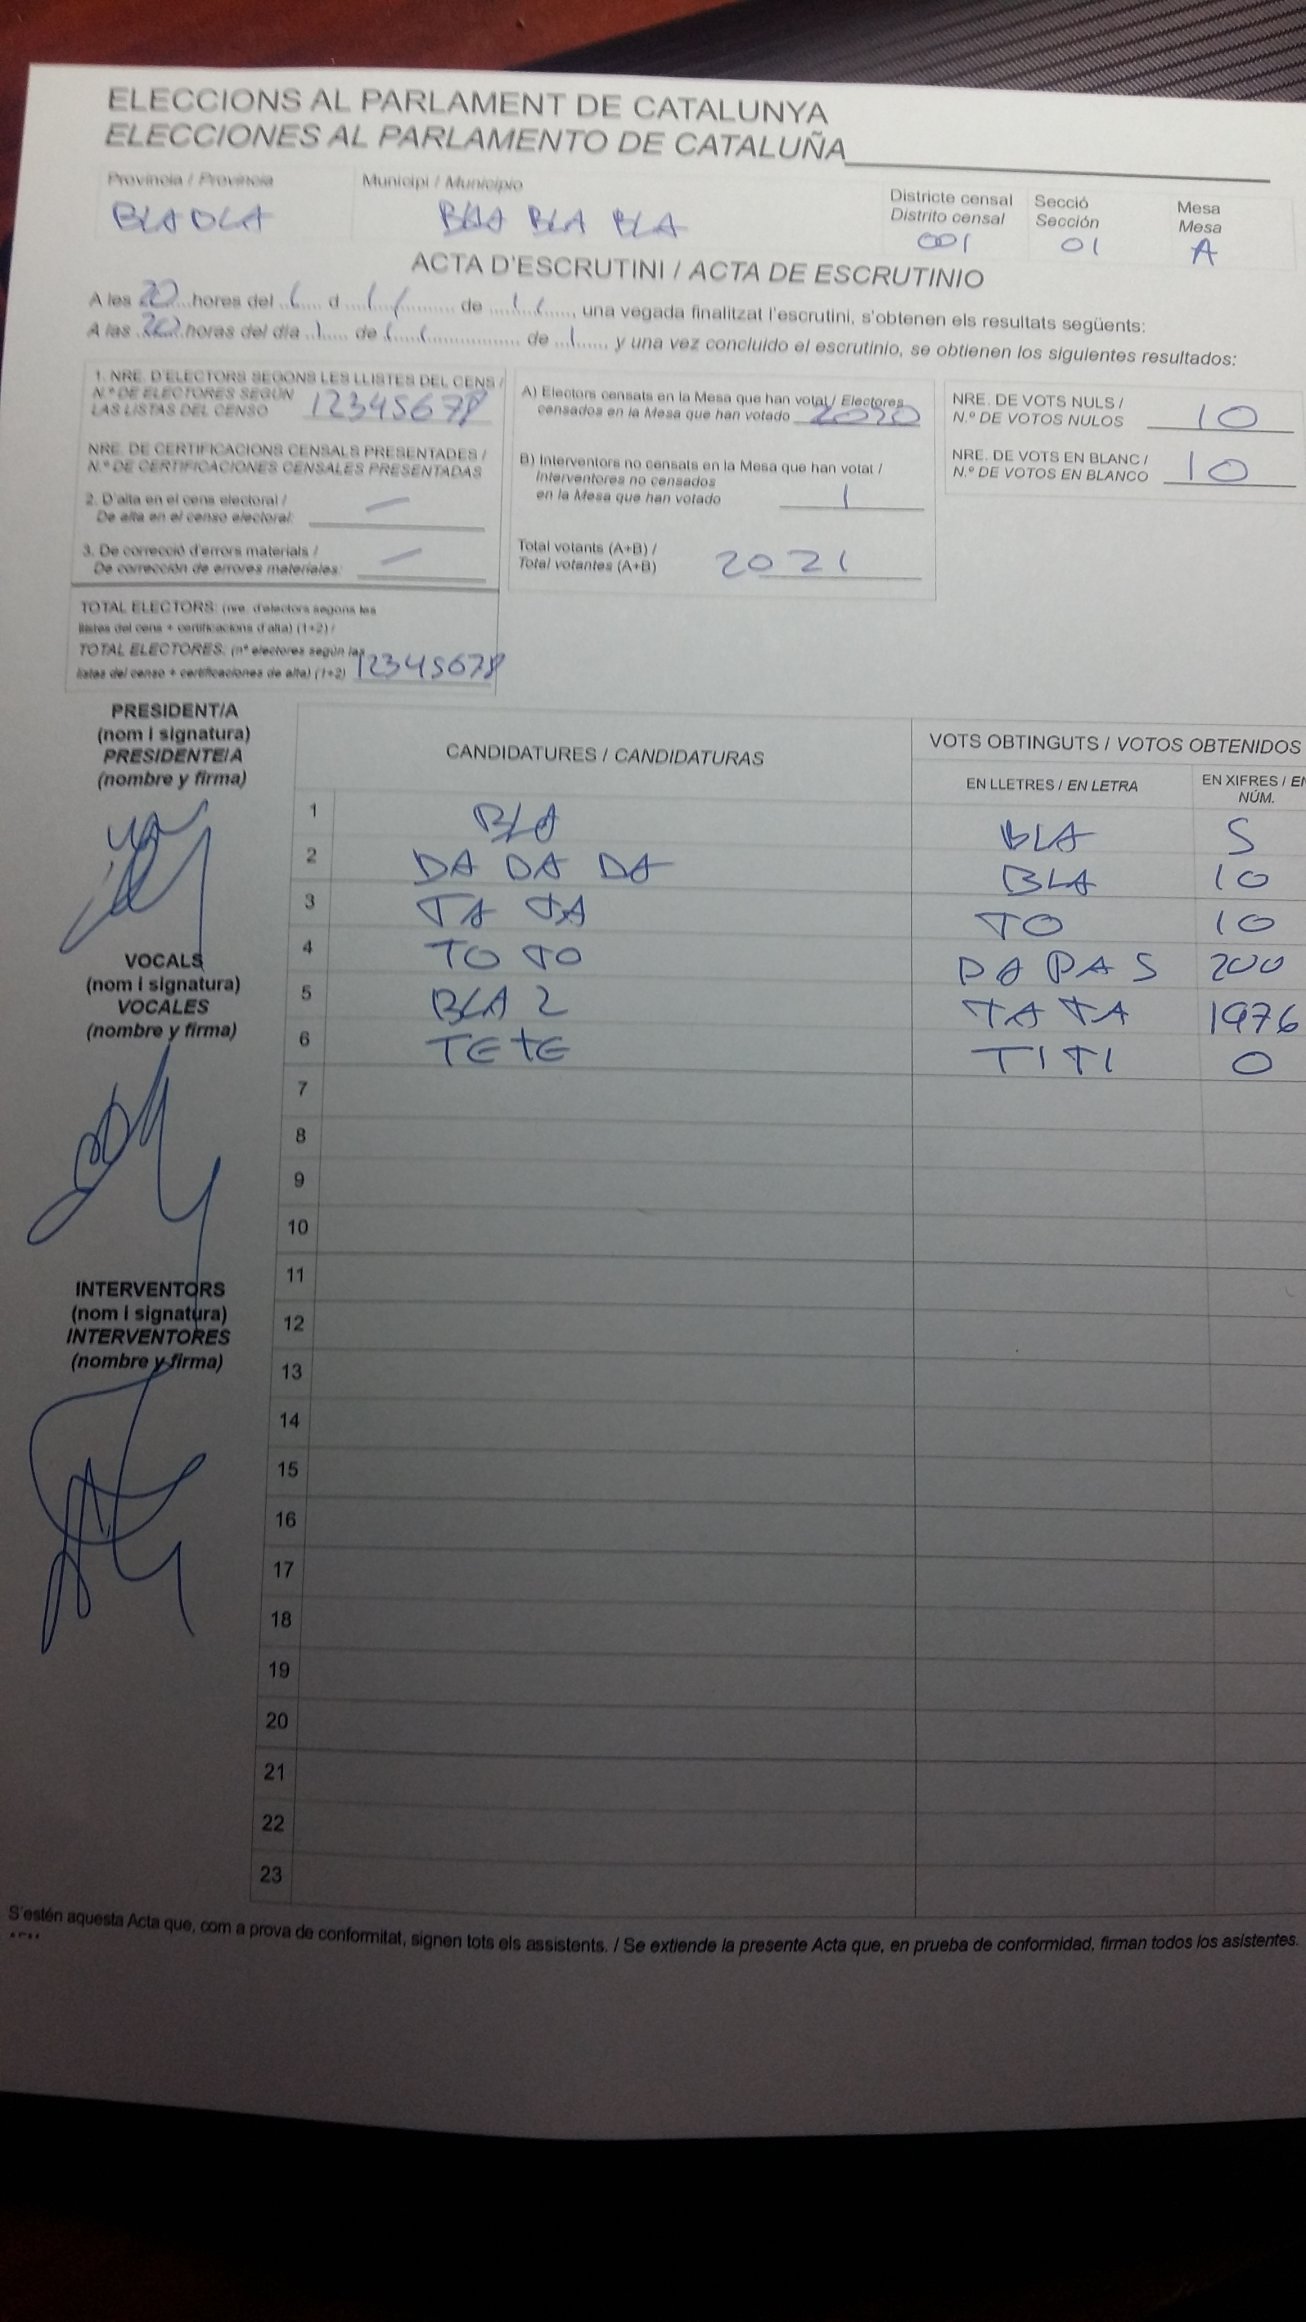 ELECCIONS AL PARLAMENT DE CATALUNYA
ELECCIONES AL PARLAMENTO DE CATALUÑA
Provincia / Provincia Municipi / Municipio Districte censal Secció Mesa
Distrito censal Sección Mesa
BLA BLA BLA BLA BLA 001 01 A
ACTA D'ESCRUTINI / ACTA DE ESCRUTINIO
A les 20 hores del ... d ... de ..., una vegada finalitzat l'escrutini, s'obtenen els resultats següents:
A las 20 horas del día 1 de ... de 1 y una vez concluido el escrutinio, se obtienen los siguientes resultados:
1. NRE. D'ELECTORS SEGONS LES LLISTES DEL CENS /
N.º DE ELECTORES SEGÚN
LAS LISTAS DEL CENSO 12345678
NRE. DE CERTIFICACIONS CENSALS PRESENTADES /
N.º DE CERTIFICACIONES CENSALES PRESENTADAS
2. D'alta en el cens electoral / —
De alta en el censo electoral:
3. De correcció d'errors materials / —
De corrección de errores materiales:
TOTAL ELECTORS: (nre. d'electors segons les
llistes del cens + certificacions d'alta) (1+2) /
TOTAL ELECTORES: (nº electores según las
listas del censo + certificaciones de alta) (1+2) 12345678
A) Electors censats en la Mesa que han votat / Electores
censados en la Mesa que han votado 2020
B) Interventors no censats en la Mesa que han votat /
Interventores no censados
en la Mesa que han votado 1
Total votants (A+B) /
Total votantes (A+B) 2021
NRE. DE VOTS NULS /
N.º DE VOTOS NULOS 10
NRE. DE VOTS EN BLANC /
N.º DE VOTOS EN BLANCO 10
PRESIDENT/A
(nom i signatura)
PRESIDENTE/A
(nombre y firma)
VOCALS
(nom i signatura)
VOCALES
(nombre y firma)
INTERVENTORS
(nom i signatura)
INTERVENTORES
(nombre y firma)
CANDIDATURES / CANDIDATURAS VOTS OBTINGUTS / VOTOS OBTENIDOS
EN LLETRES / EN LETRA EN XIFRES / EN
NÚM.
1 BLA BLA 5
2 DA DA DA BLA 10
3 TA TA TO 10
4 TO TO PA PA S 200
5 BLA 2 TA TA 1976
6 TE TE TI TI 0
7
8
9
10
11
12
13
14
15
16
17
18
19
20
21
22
23
S'estén aquesta Acta que, com a prova de conformitat, signen tots els assistents. / Se extiende la presente Acta que, en prueba de conformidad, firman todos los asistentes.